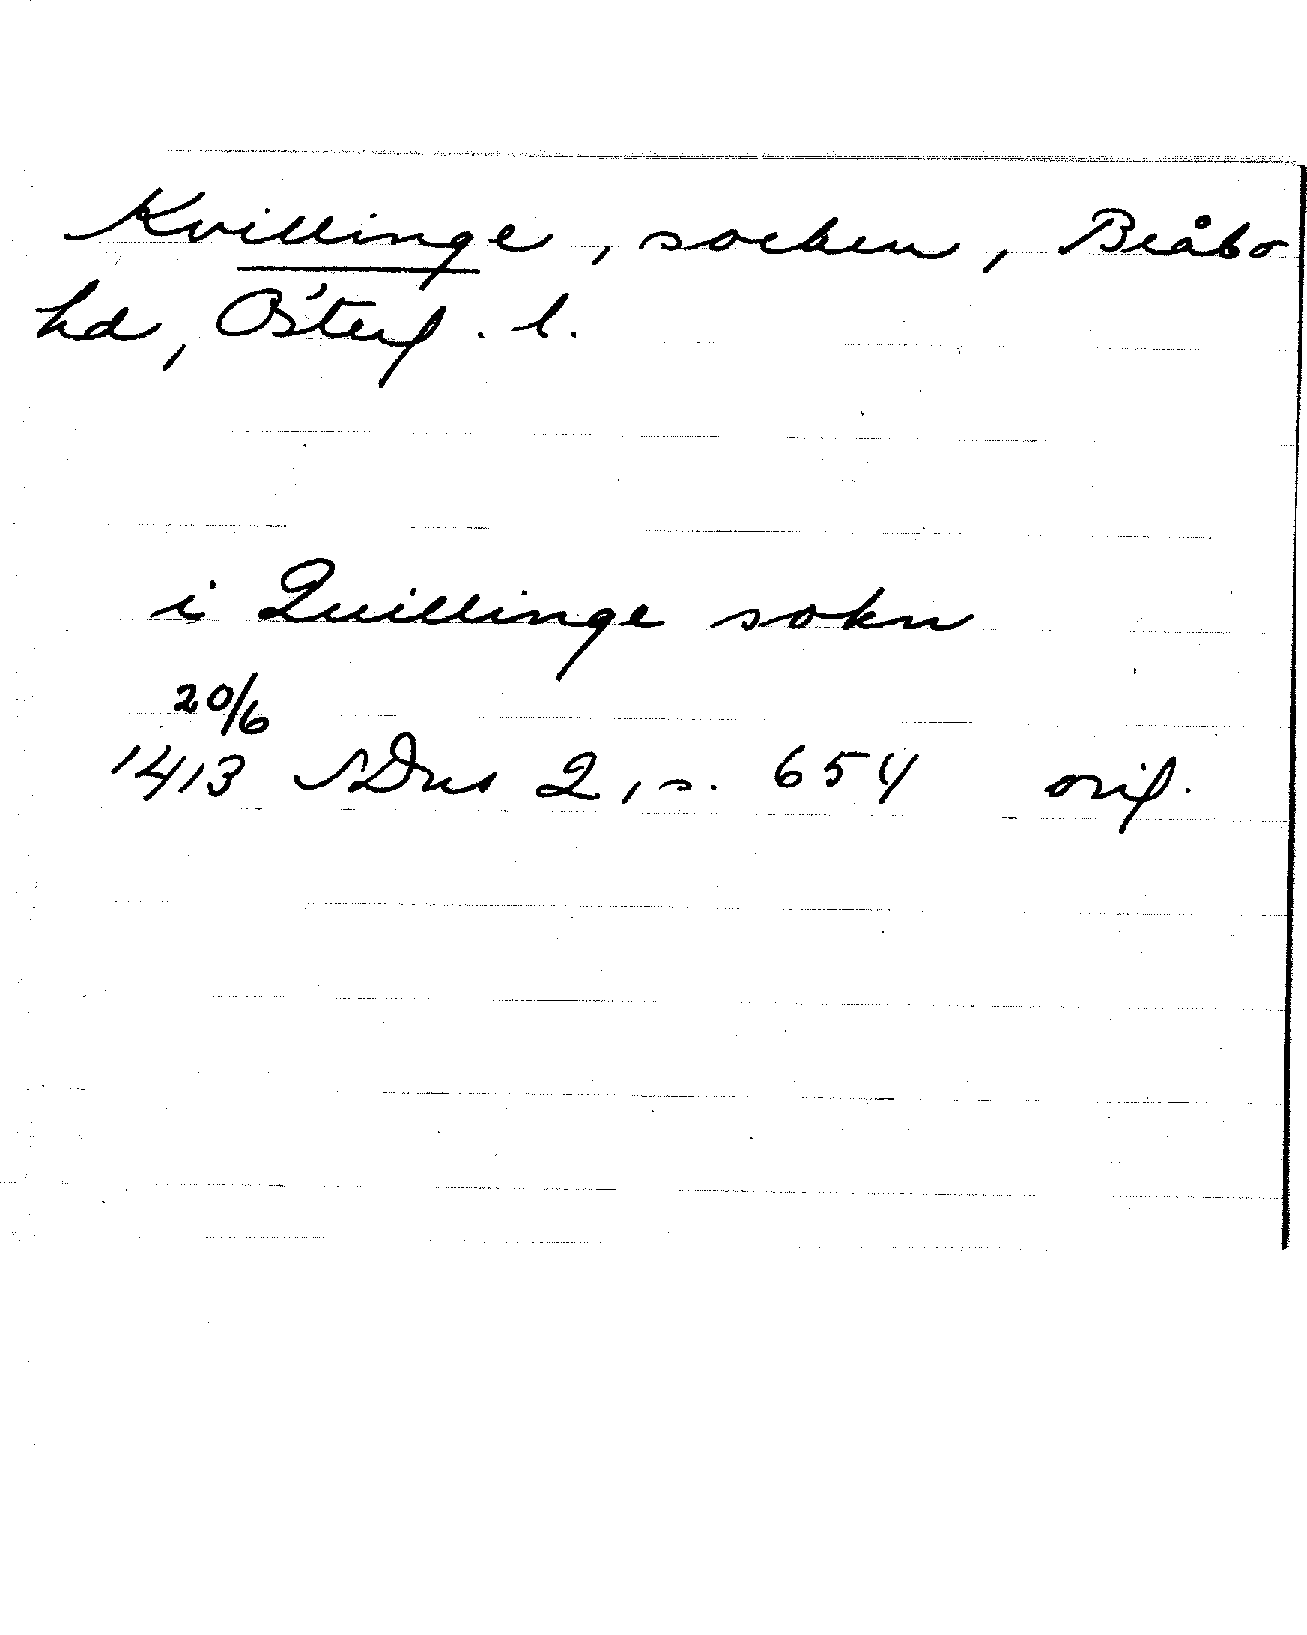 Kvillinge, socken, Bråbo
hd, Österg. l.
i Quillinge sokn
20/6
1413 SDns 2, s. 654 orig.